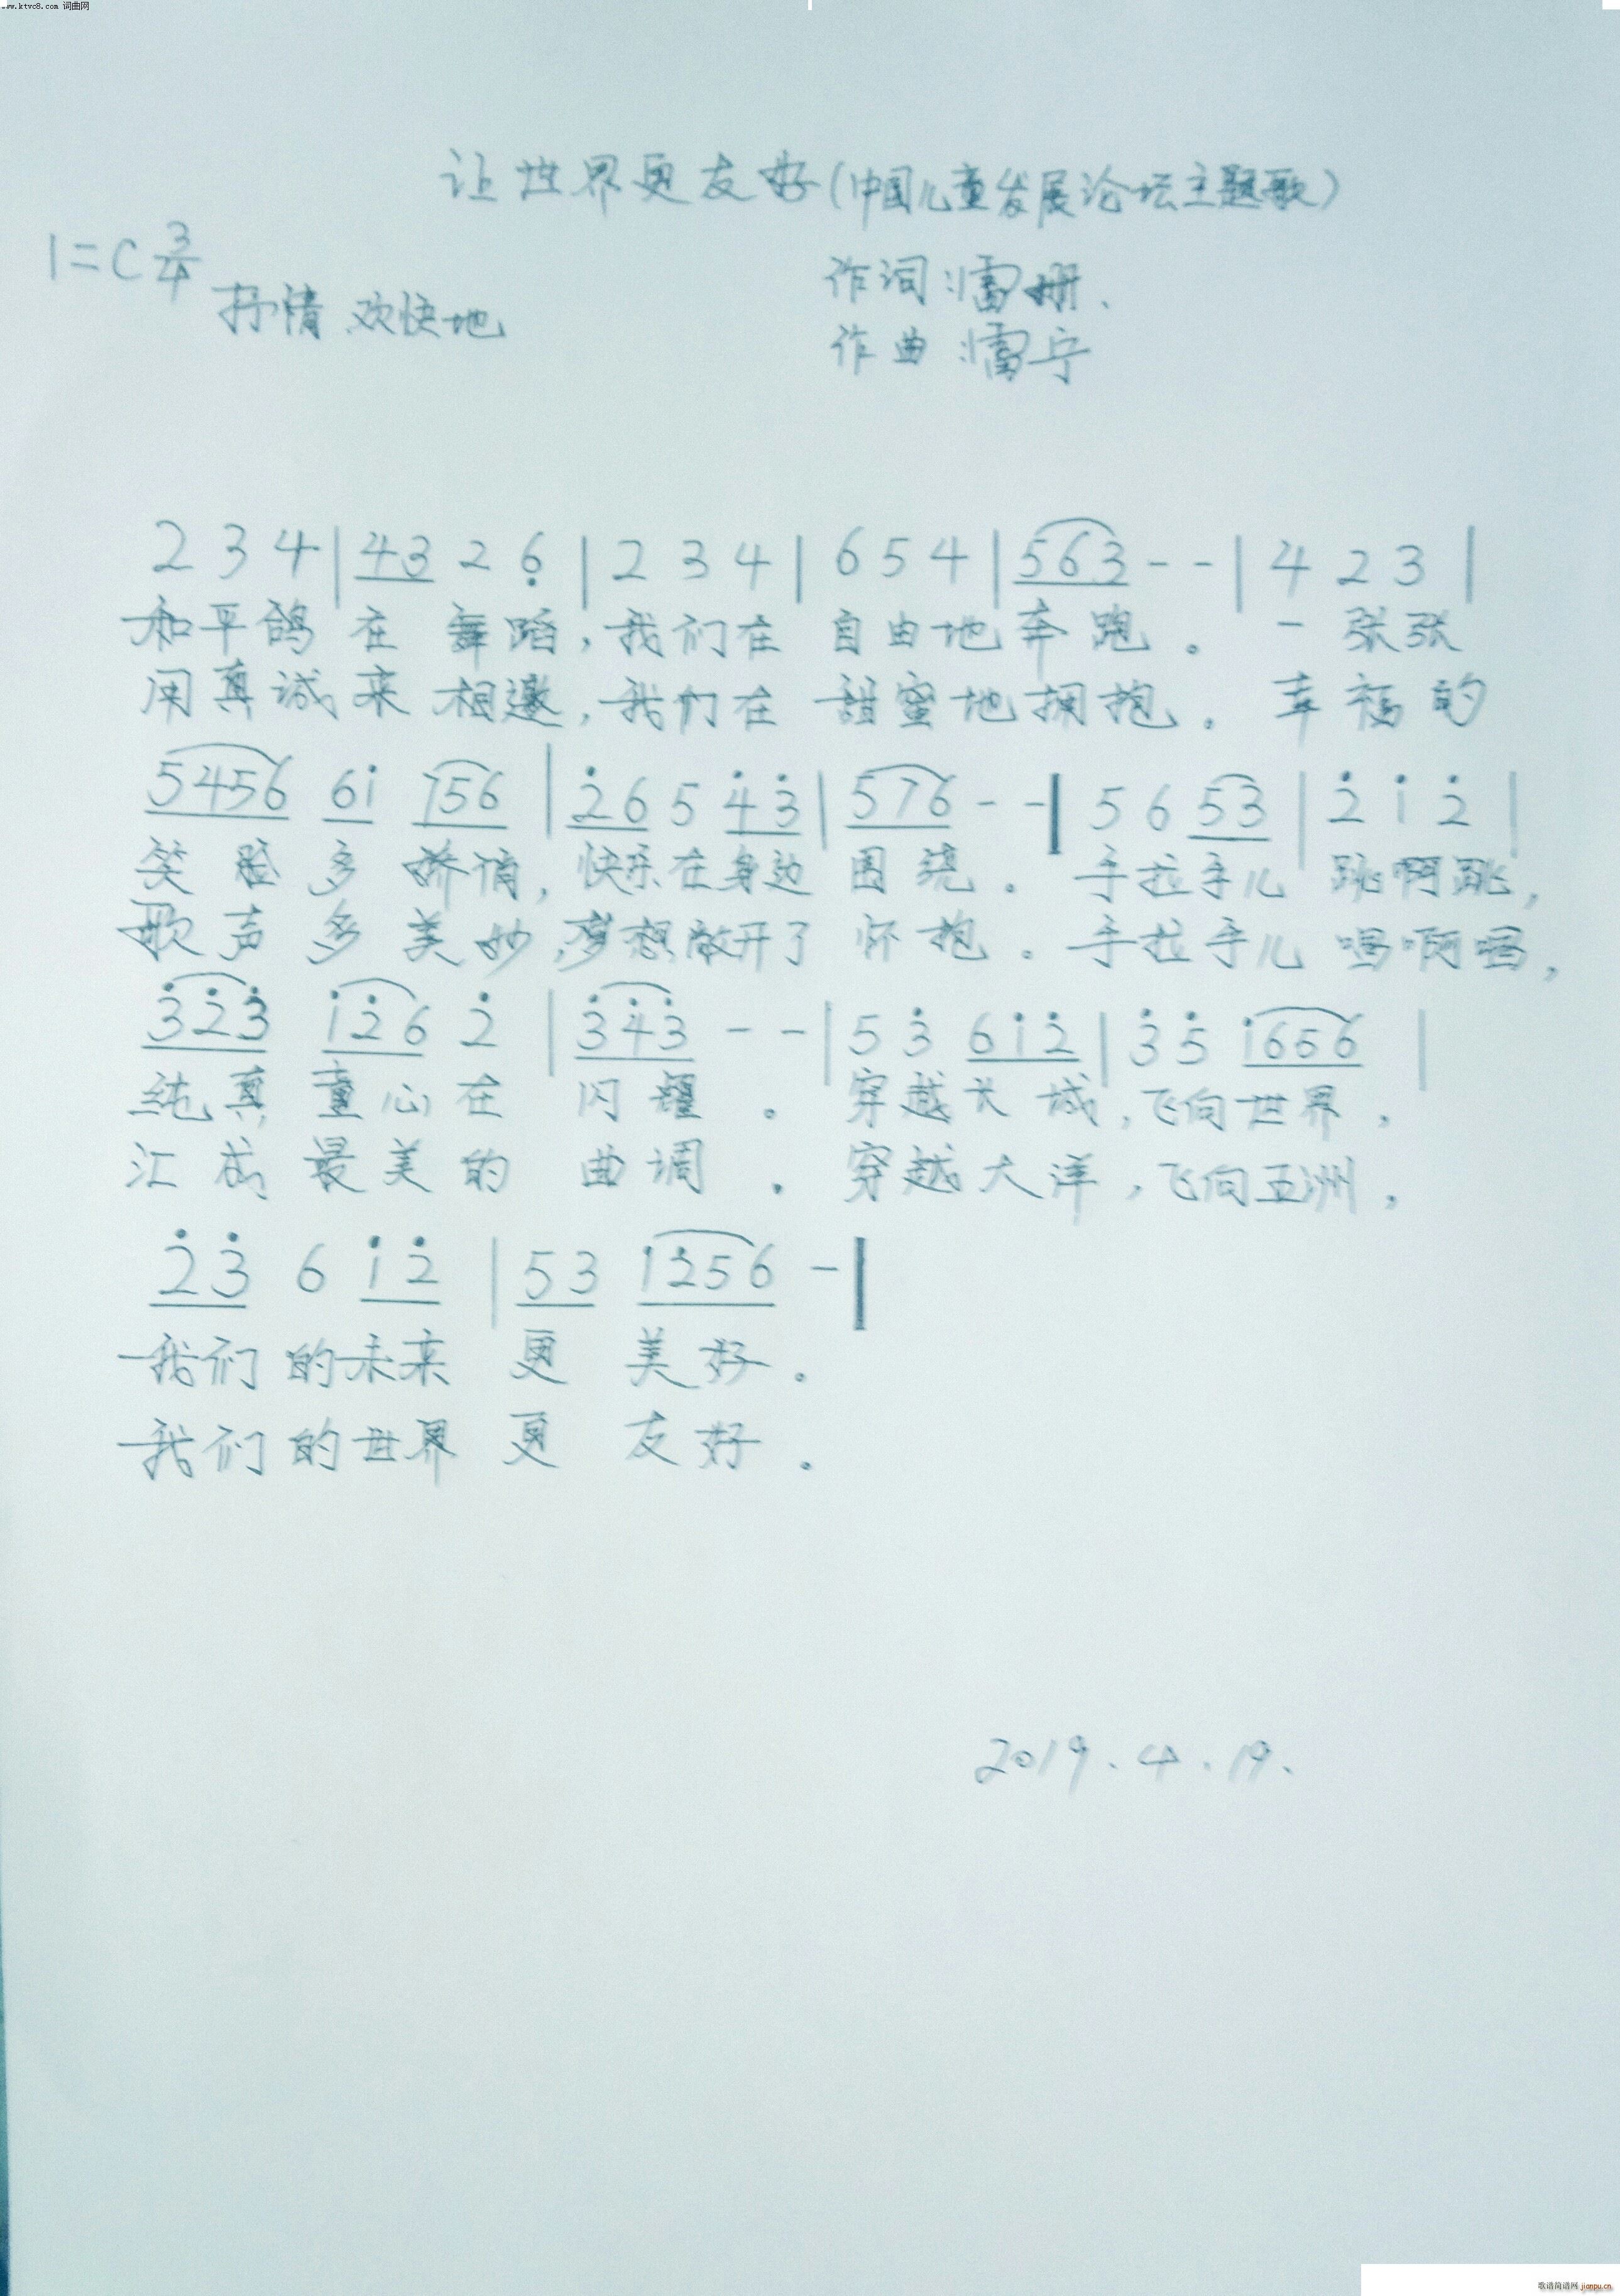 www.ktvc8.com 词曲网
让世界更友好(中国儿童发展论坛主题歌)
1=C 3/4
抒情、欢快地
作词:雷姗、
作曲:雷宁
2 3 4 | 43 2 6̣ | 2 3 4 | 6 5 4 | 563 - - | 4 2 3 |
和平鸽 在 舞蹈,我们在 自由地奔跑。一张张
用真诚来相邀,我们在 甜蜜地拥抱。幸福的
5456 6i̇ 756 | 2̇6 5 4̇3̇ | 576 - - | 5 6 53 | 2̇ i̇ 2̇ |
笑脸多娇俏,快乐在身边围绕。手拉手儿跳啊跳,
歌声多美妙,梦想敞开了怀抱。手拉手儿唱啊唱,
3̇2̇3̇ i̇2̇6 2̇ | 3̇4̇3̇ - - | 5 3̇ 6i̇2̇ | 3̇ 5̇ i̇656 |
纯真童心在闪耀。穿越长城,飞向世界,
汇成最美的曲调。穿越大洋,飞向五洲,
2̇3̇ 6 i̇2̇ | 53 i̇2̇56 - |
我们的未来更美好。
我们的世界更友好。
2019.4.19.
歌谱简谱网 jianpu.cn